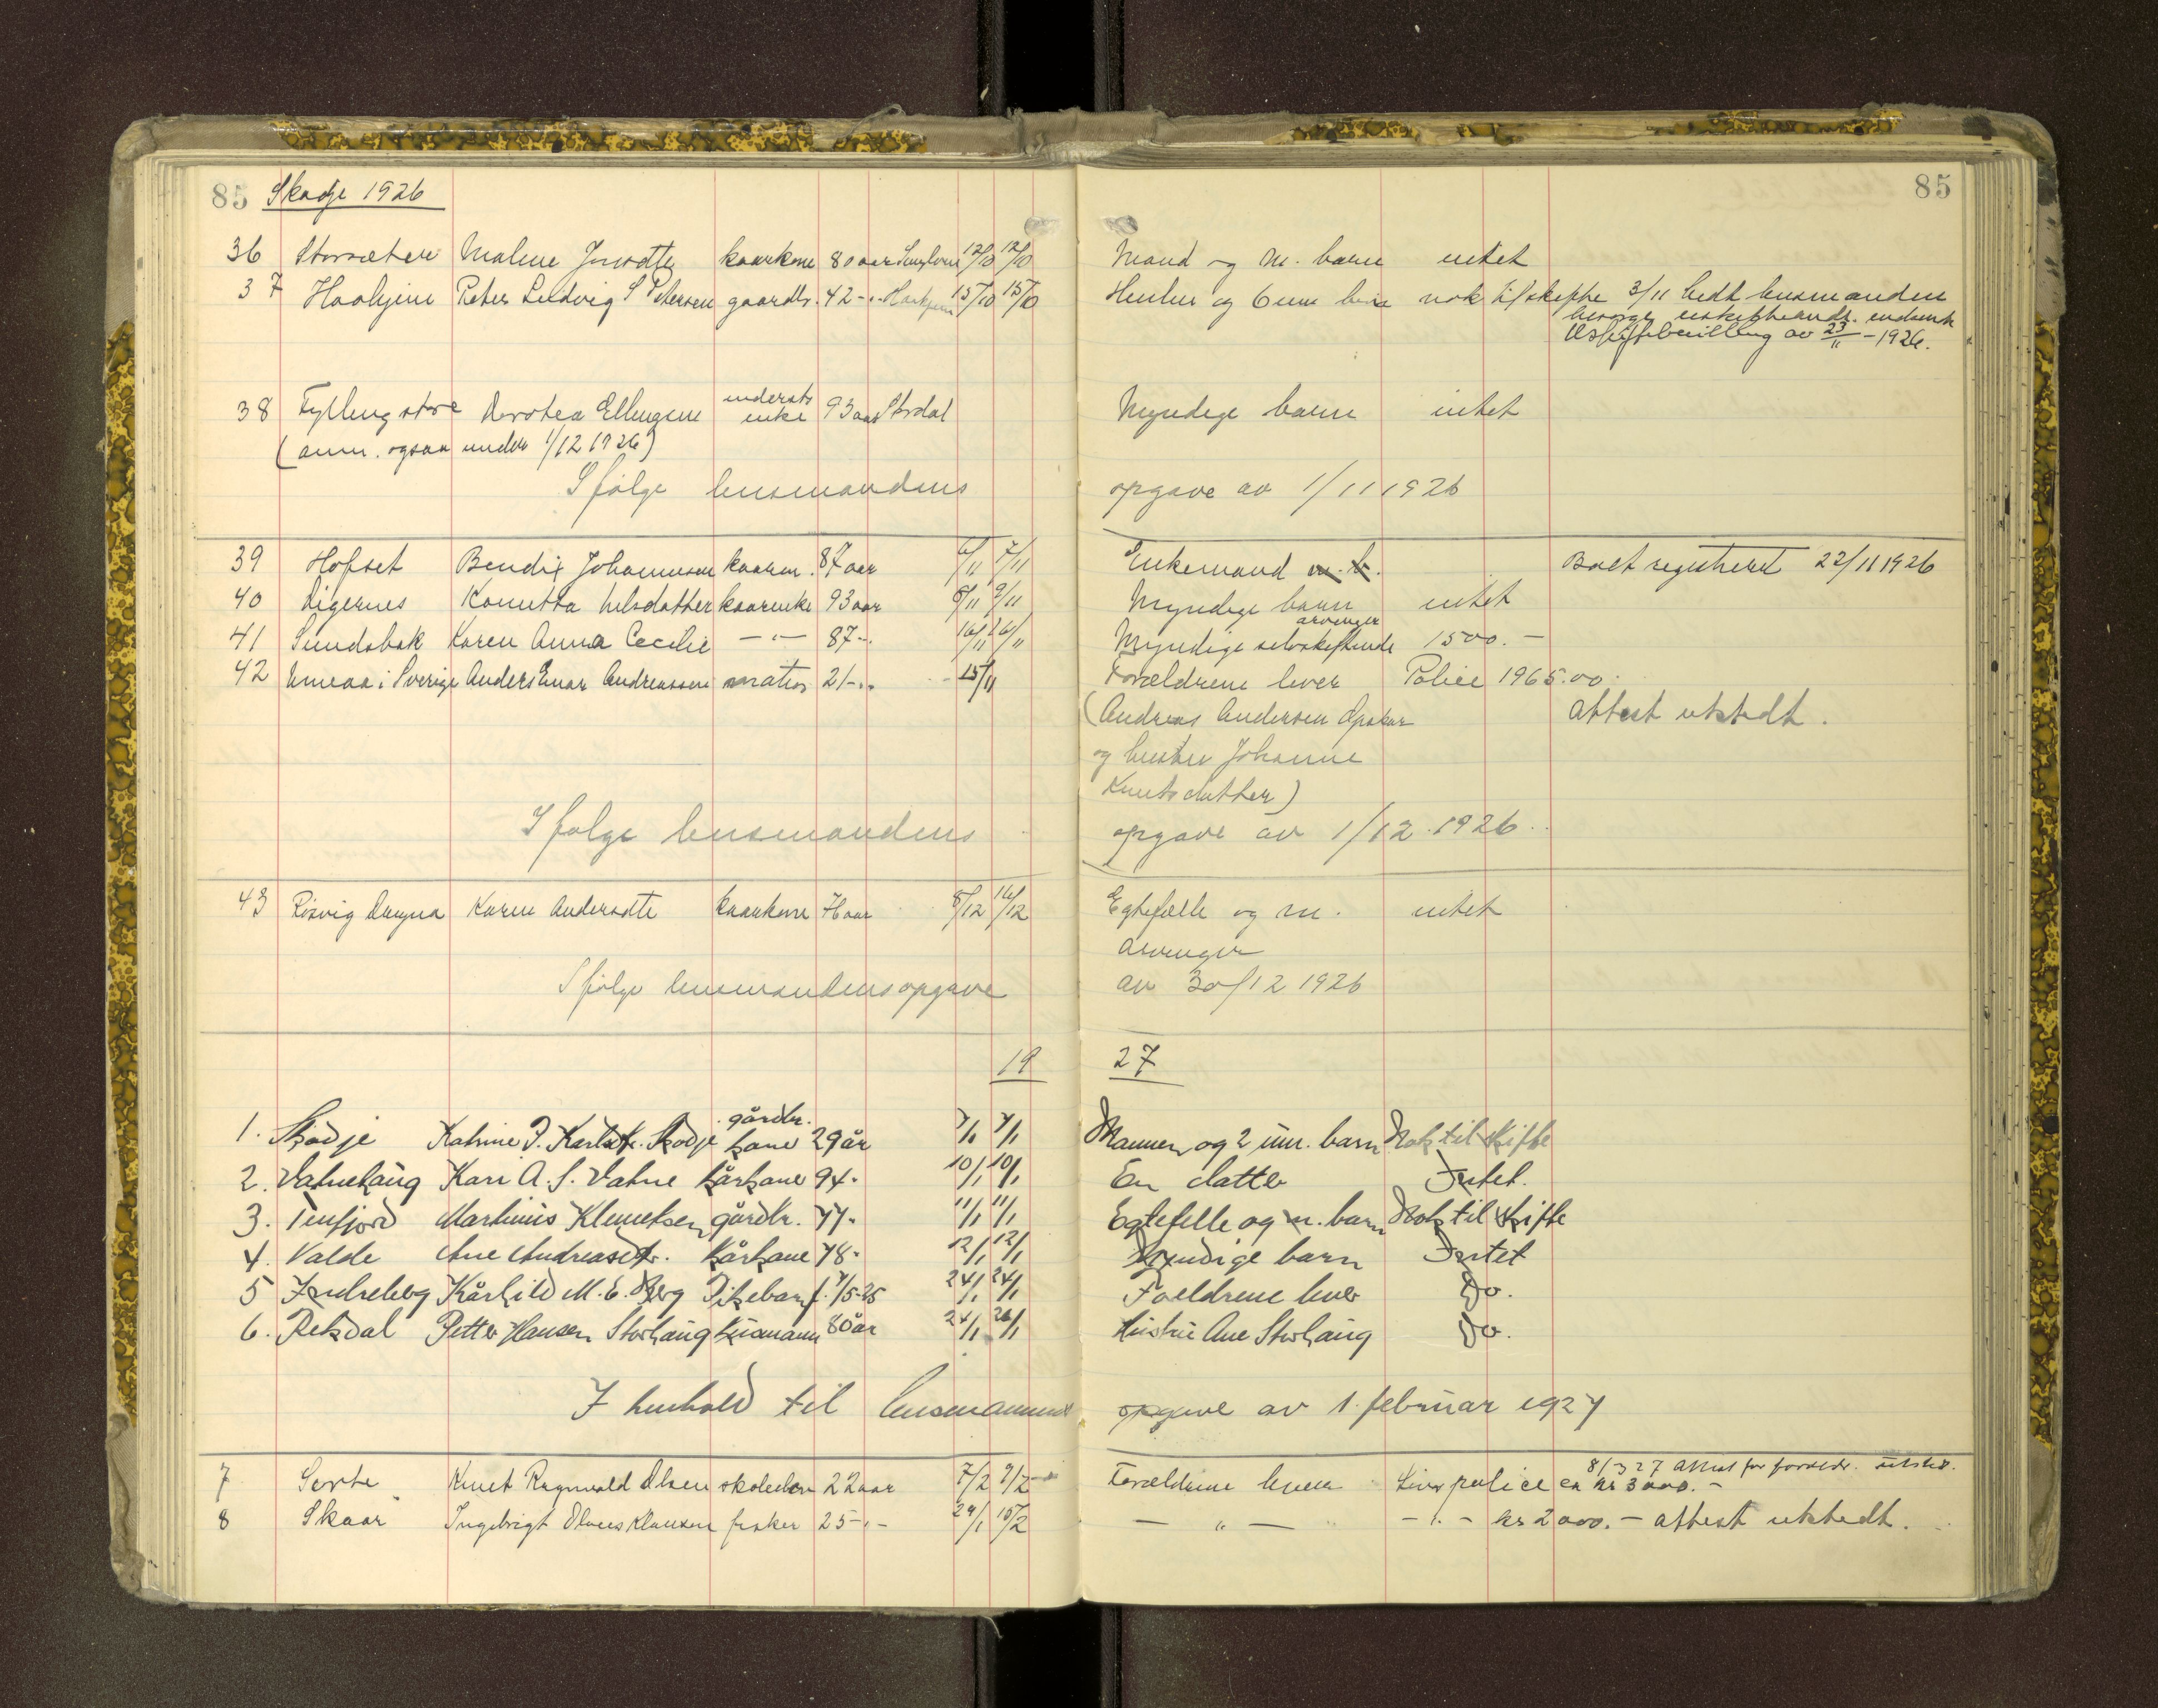 85 Skodje 1926 85
36 Storsæteren Malene Jonsdtr kaarkone 80 aar 12/10 12/10 Mand og m. barn intet
37 Peter Ludvig S Petersen gaardbr. 42 -"- 15/10 15/10 Hustru og 6 um barn nok til skifte 3/11 bedt lensmanden
besørge uskifteandr. indsendt
Uskiftebevilling av 23/11 - 1926.
38 Fylling store Dorotea Ellingsen underst. enke 93 aar Stordal Myndige barn intet
(anm. ogsaa under 1/12 1926)
Ifølge lensmandens opgave av 1/11 1926
39 Hofset Bendix Johannesen kaarm. 87 aar 6/11 7/11 Enkemand m. b. Boet registreret 22/11 1926
40 Ligernes Nilsdatter kaarenke 93 aar 8/11 9/11 Myndige barn intet
41 Sundsbak Karen Anna Cecilie -"- 87 -"- 16/11 26/11 Myndige selvskiftende arvinger 1500.-
42 Umeaa i Sverige Anders Einar Andreassen matros 21 -"- 15/11 Forældrene lever Police 1965.00.
(Andreas Andersen Opskar Attest utstedt.
og hustru Johanne
Knutsdatter)
Ifølge lensmandens opgave av 1/12. 1926.
43 Risvig Karen Andersdtr kaarkone 76 aar 8/12 16/12 Egtefælle og m. intet
arvinger
Ifølge lensmandens opgave av 30/12 1926
19 27
1. Skodje Katrine P. Karlsdtr. Skodje gårdbr. kone 29 år 7/1 7/1 Mannen og 2 um. barn Nok til skifte
2. Vatnehaug Kari A. S. Vatne kårkone 94. 10/1 10/1 En datter Intet.
3. Tenfjord Martinus Klemetsen gårdbr. 77. 11/1 11/1 Egtefelle og m. barn Nok til skifte
4. Valde Ane Andreasdtr. kårkone 78. 12/1 12/1 Myndige barn Intet
5 Indreberg Kårhild M. E. Berg Pikebarn f. 7/5-25 24/1 24/1 Foreldrene lever Do.
6. Reksdal Petter Hansen Storhaug husmann 80 år 24/1 26/1 Hustru Ane Storhaug Do.
I henhold til lensmannens opgave av 1. februar 1927
8/3 27 Attest for foreldr. utsted.
7 Sorte Knut Ragnvald Olsen skoleelev 22 aar 7/2 9/2 Forældrene lever Livspolice ca kr 3000.-
8 Skaar Ingebrigt Olaves Klausen fisker 25 -"- 29/1 15/2 - " - - " - kr 2000.- attest utstedt.